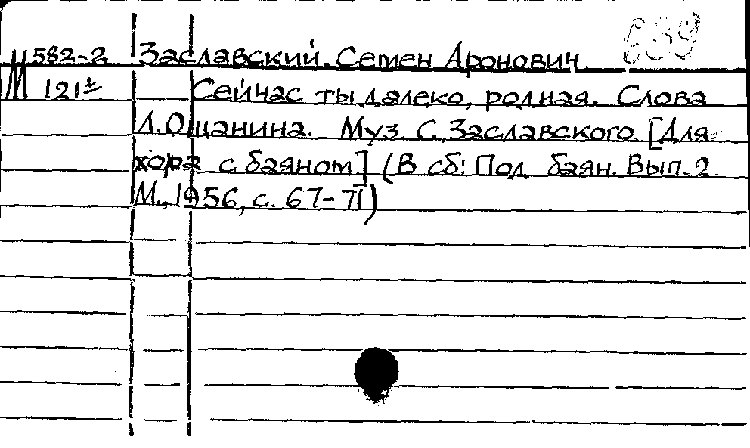 М 582-2 Заславский. Семен Аронович
121 Сейчас ты далеко, родная. Слова
Л. Ошанина. Муз С. Заславского [Для
хора с баяном] (В сб: Под баян. Вып. 2
М., 1956, с. 67-71)